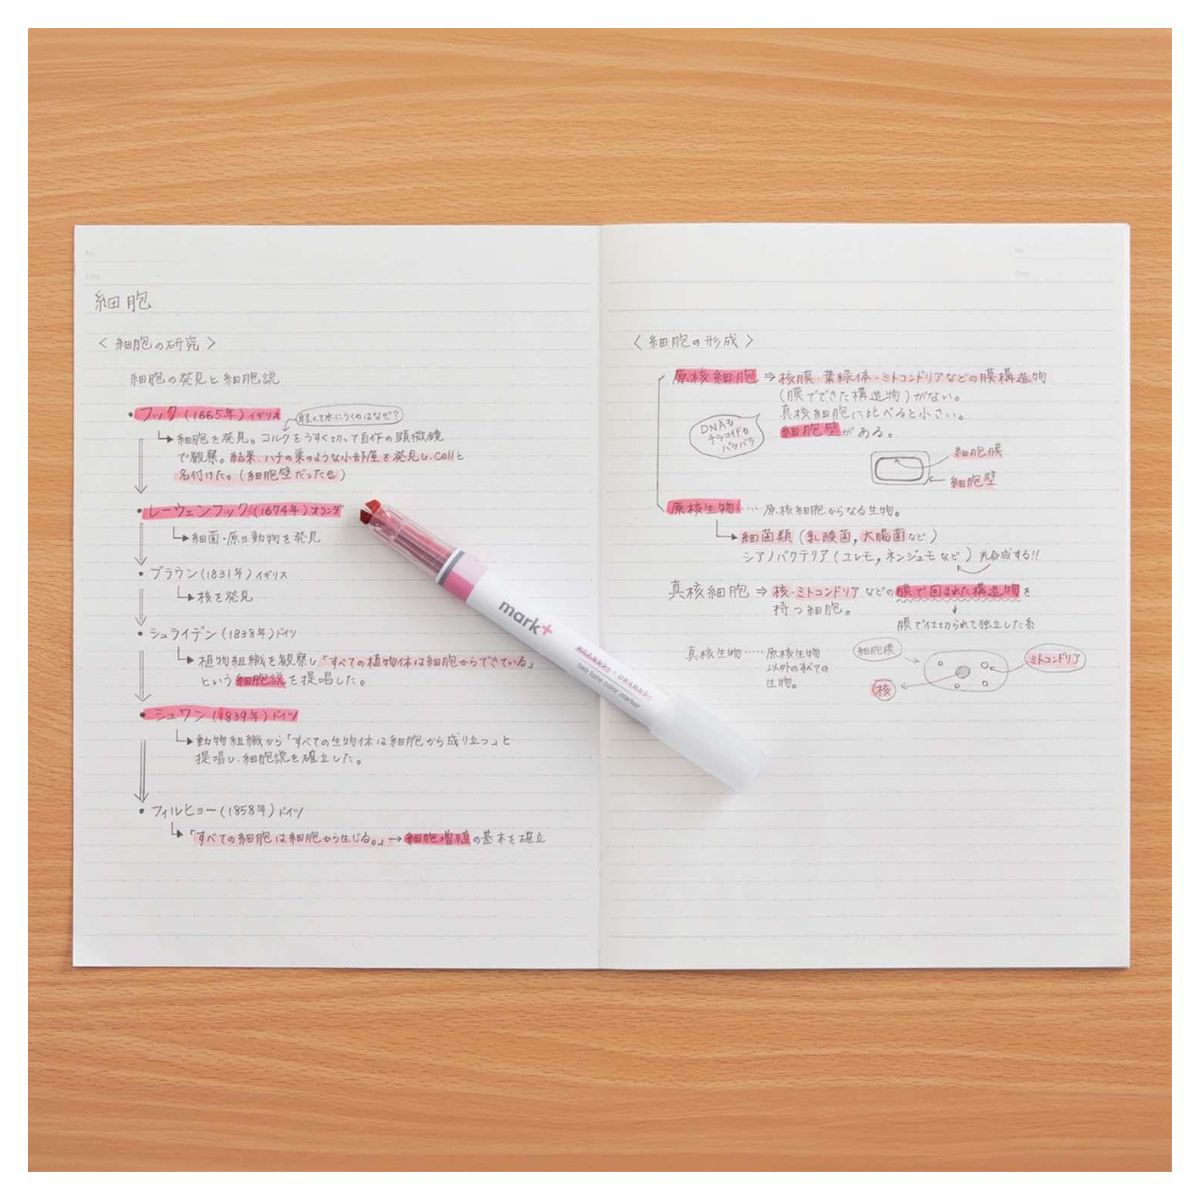 No.
Date
細胞
〈細胞の研究〉
細胞の発見と細胞説
・フック(1665年)イギリス
軽くて水にうくのはなぜ?
細胞を発見。コルクをうすく切って自作の顕微鏡
で観察。結果、ハチの巣のような小部屋を発見し、cellと
名付けた。(細胞壁だった
・レーウェンフック(1674年)オランダ
細菌・原生動物を発見
・ブラウン(1831年)イギリス
核を発見
・シュライデン(1838年)ドイツ
植物組織を観察し「すべての植物体は細胞からできている」
という細胞説を提唱した。
・シュワン(1839年)ドイツ
動物組織から「すべての生物体は細胞から成り立つ」と
提唱し、細胞説を確立した。
・フィルヒョー(1858年)ドイツ
「すべての細胞は細胞から生じる。」→細胞増殖の基本を確立
No.
Date
〈細胞の形成〉
原核細胞⇒核膜・葉緑体・ミトコンドリアなどの膜構造物
(膜でできた構造物)がない。
真核細胞に比べると小さい。
細胞壁がある。
DNAも
チラコイドも
バラバラ
細胞膜
細胞壁
原核生物‥‥原核細胞からなる生物。
細菌類(乳酸菌,大腸菌など)
シアノバクテリア(ユレモ,ネンジュモなど)光合成する!!
真核細胞⇒核・ミトコンドリアなどの膜で囲まれた構造物を
持つ細胞。
膜で仕切られて独立した系
真核生物‥‥‥原核生物
以外のすべての
生物。
細胞膜
ミトコンドリア
核
mark+
two tone color marker